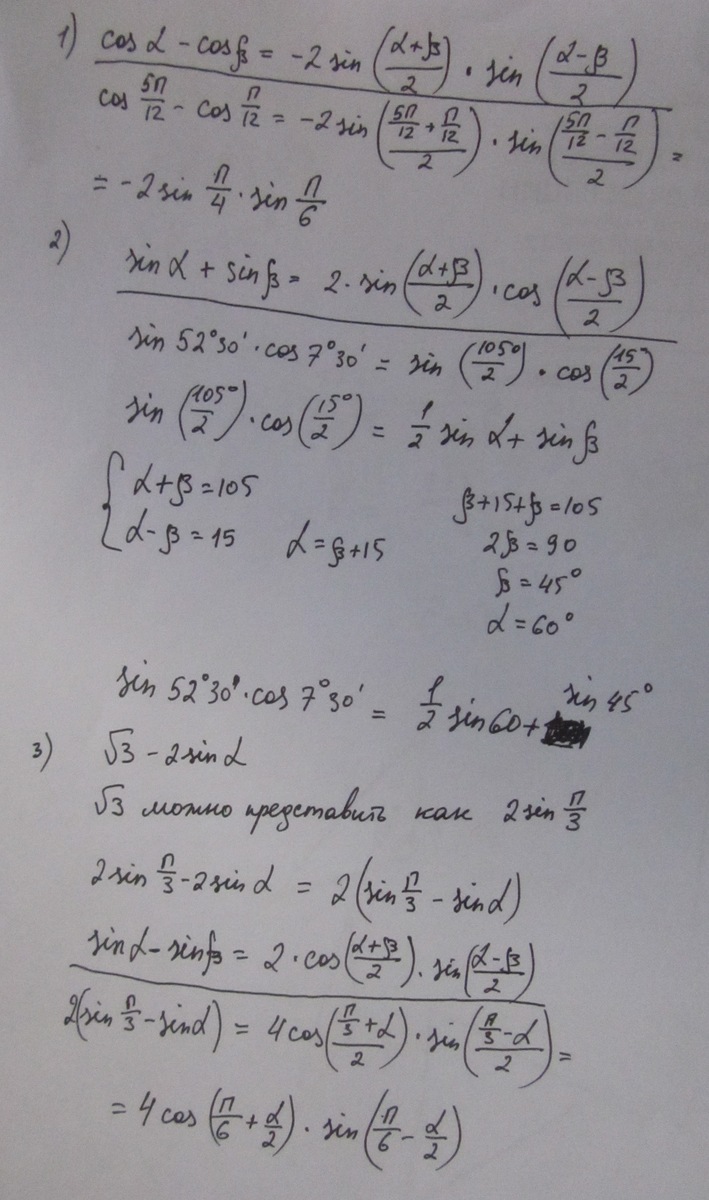 1) cos α - cos β = -2 sin ((α+β)/2) · sin ((α-β)/2)
cos 5π/12 - cos π/12 = -2 sin ((5π/12 + π/12)/2) · sin ((5π/12 - π/12)/2) =
= -2 sin π/4 · sin π/6
2) sin α + sin β = 2 · sin ((α+β)/2) · cos ((α-β)/2)
sin 52°30' · cos 7°30' = sin (105°/2) · cos (15°/2)
sin (105°/2) · cos (15°/2) = 1/2 sin α + sin β
{ α+β = 105
α-β = 15 α = β+15
β+15+β = 105
2β = 90
β = 45°
α = 60°
sin 52°30' · cos 7°30' = 1/2 sin 60 + sin 45°
3) √3 - 2 sin α
√3 можно представить как 2 sin π/3
2 sin π/3 - 2 sin α = 2 (sin π/3 - sin α)
sin α - sin β = 2 · cos ((α+β)/2) · sin ((α-β)/2)
2(sin π/3 - sin α) = 4 cos ((π/3 + α)/2) · sin ((π/3 - α)/2) =
= 4 cos (π/6 + α/2) · sin (π/6 - α/2)